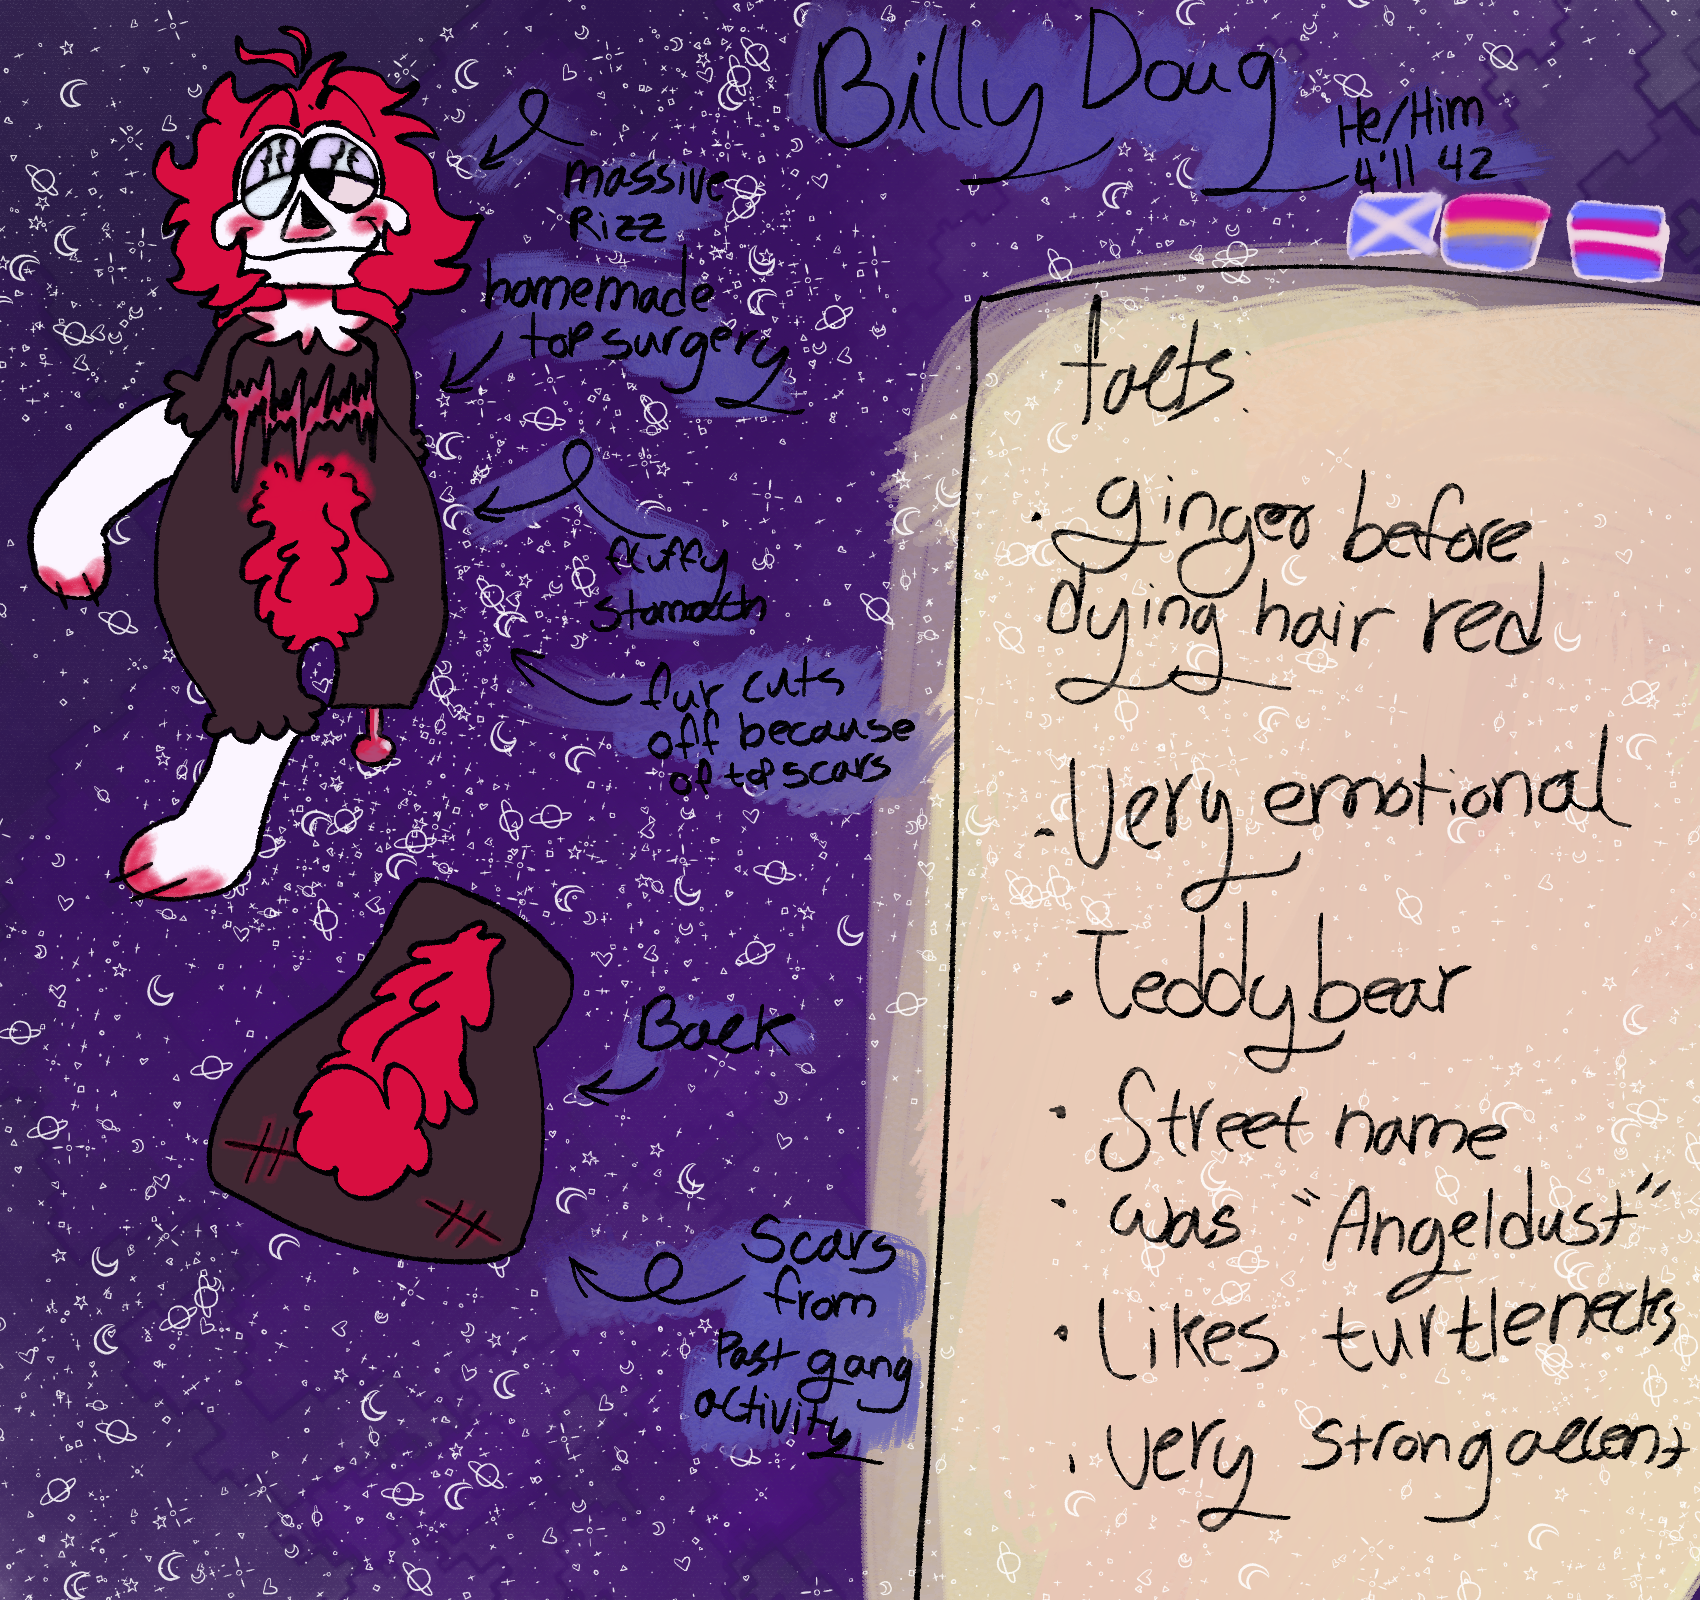 Billy Doug
He/Him
4'11 42
massive
Rizz
homemade
top surgery
fluffy
Stomach
fur cuts
off because
of top scars
Back
Scars
from
Past gang
activity
facts:
• ginger before
dying hair red
• Very emotional
• Teddy bear
• Street name
• was "Angeldust"
• Likes turtlenecks
• Very strong accent